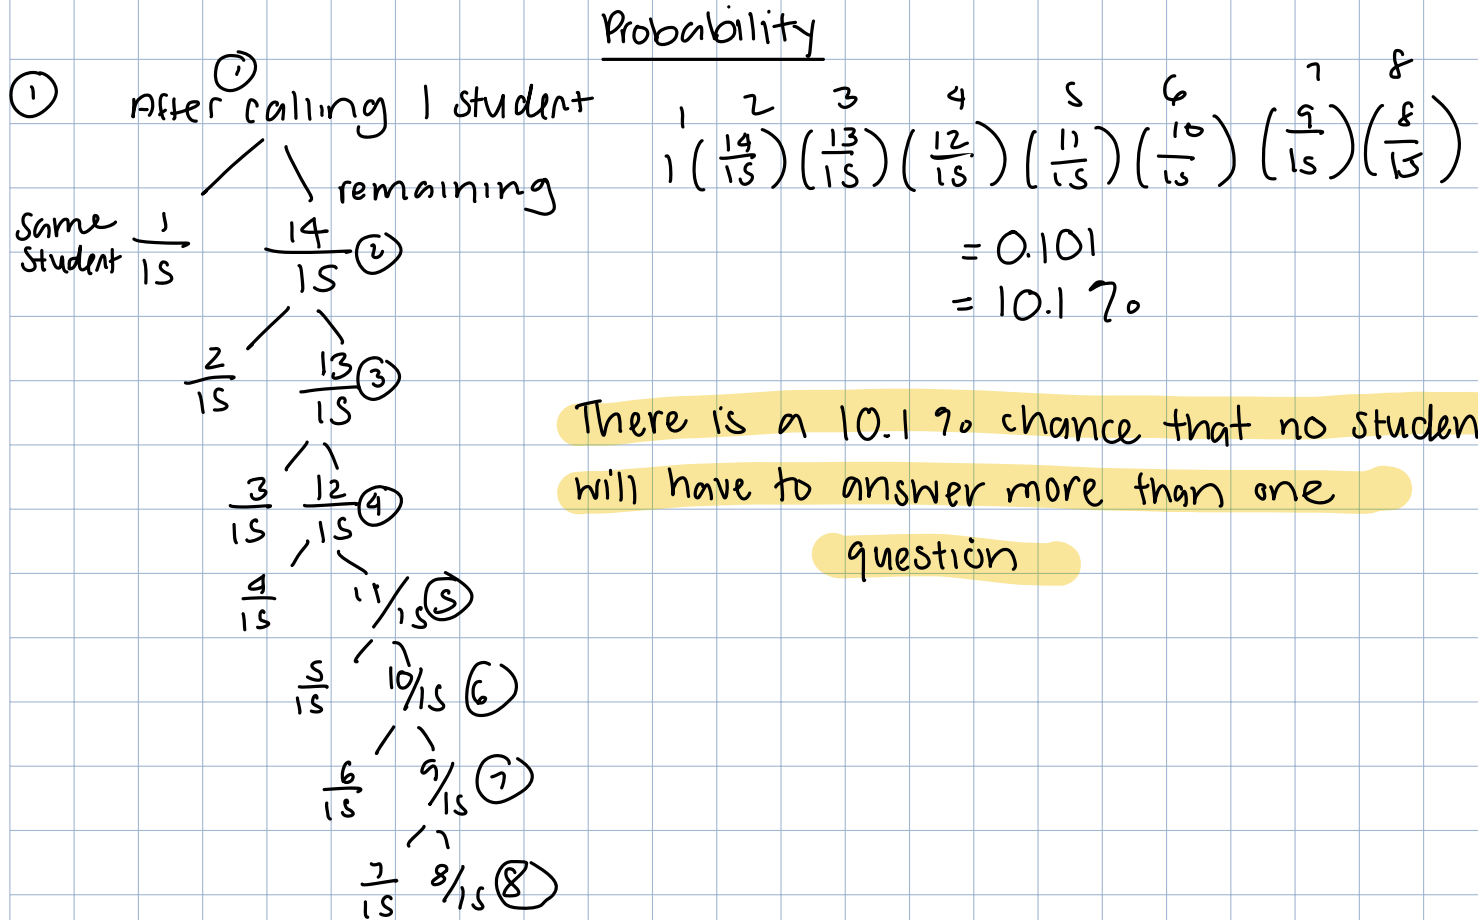 Probability
① After calling 1 student ①
remaining
same student 1/15 14/15 ②
2/15 13/15 ③
3/15 12/15 ④
4/15 11/15 ⑤
5/15 10/15 ⑥
6/15 9/15 ⑦
7/15 8/15 ⑧
1 2 3 4 5 6 7 8
1 (14/15) (13/15) (12/15) (11/15) (10/15) (9/15) (8/15)
= 0.101
= 10.1 %
There is a 10.1 % chance that no studen
will have to answer more than one
question